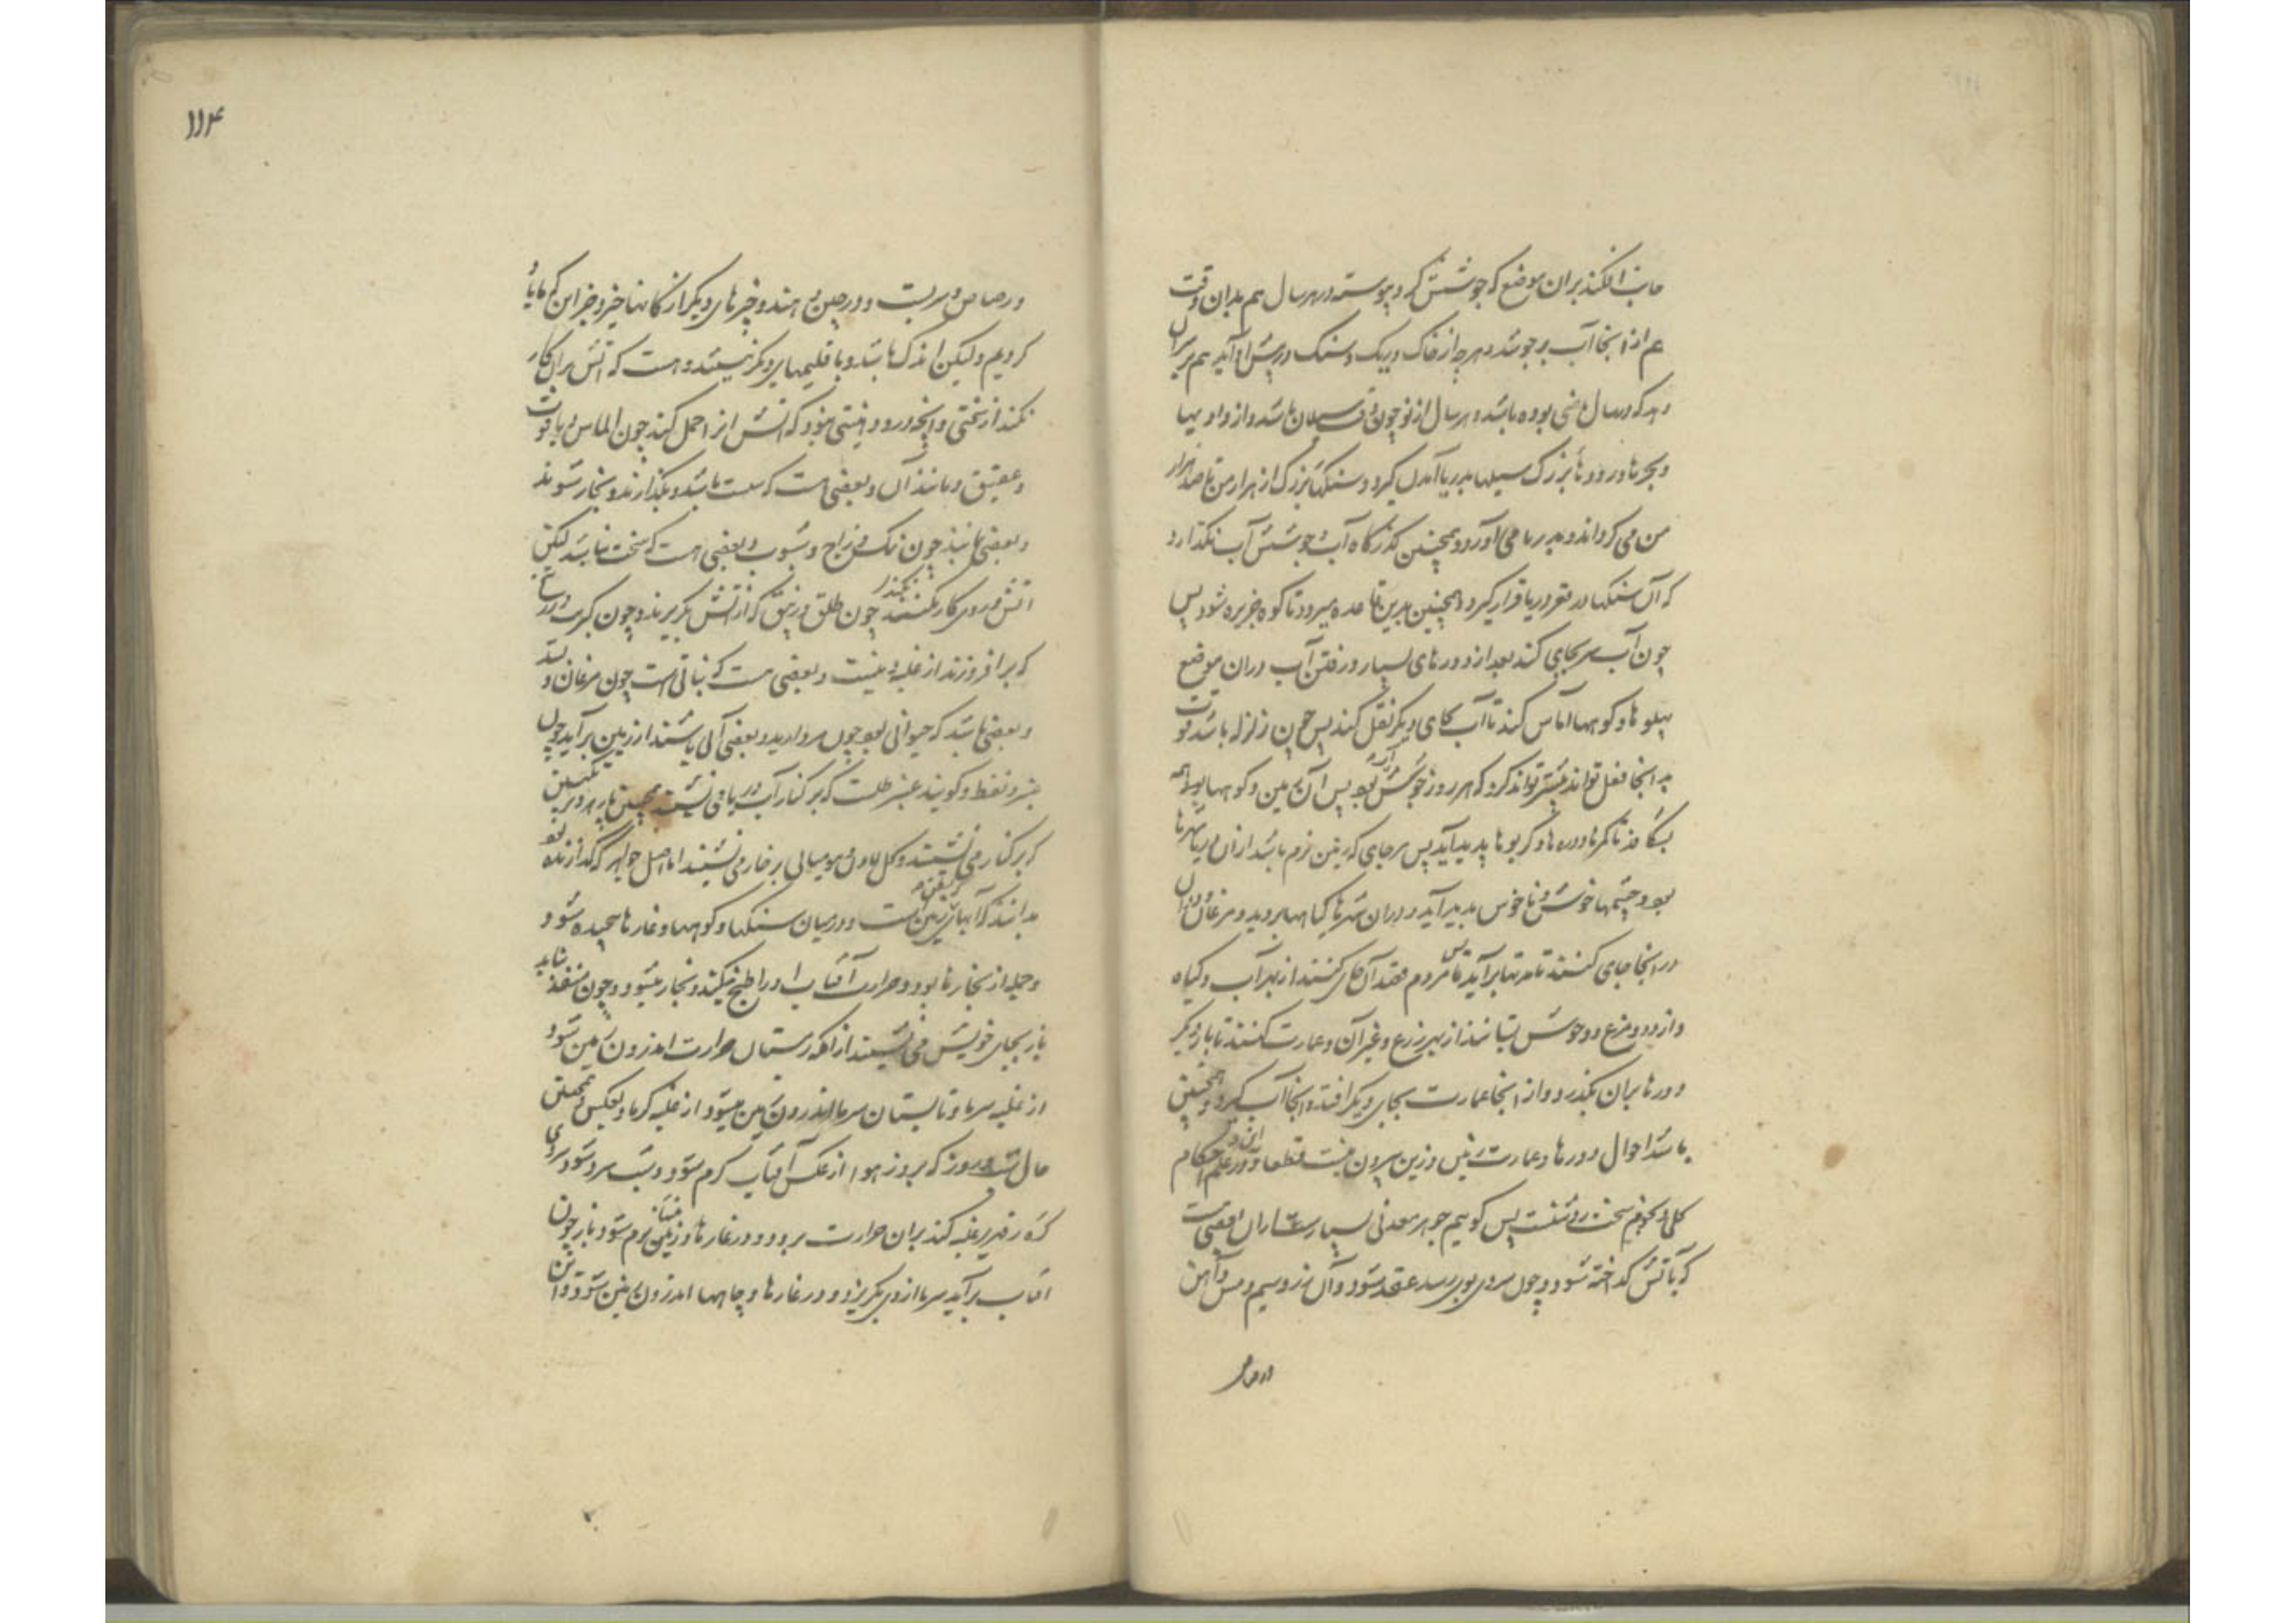 جانب افکند بران موضع که جوشش کرد پیوسته در هر سال هم بدان وقت
هم از انجا آب برجوشد و هرچه از خاک و ریک و سنک در پیش او آید هم بر سران
که در سال ماضی بوده باشد و هر سال از نو چون باشد و از وادیها
و بحرها و رودهاء بزرک سیلها بدریا آمدن کیرد و سنکهاء بزرک از هزار من تا صد هزار
من می کرداند و بدریا می آورد و همچنین کذرکاه آب و جوشش آب نکذارد
که آن سنکها در قعر دریا قرار کیرد و همچنین بدین قاعده میرود تا کوه جزیره شود پس
چون آب هر جای کند بعد از دورهای بسیار و رفتن آب دران موضع
پهلوها و کوهها اماس کند تا آب بجای دیکر نقل کند پس چون زلزله باشد قوت
بد انجا فعل تواند بیشتر تواند کرد که هر روز جوشش بود پس آن زمین و کوهها بواسطه
بشکافد تا کمرها و دره ها و کریوها پدید آید پس هر جای که زمین نرم باشد ازان دریا شهرها
بود و چشمها خوش و ناخوش پدید آید و دران شهرها کیاهها بروید و مرغان
در انجا جای کنند تا مدتها برآید تا پس مردم قصد آن جای کنند از بهر آب و کیاه
و از دد و مرغ و وحوش بستانند از بهر زرع و غیر آن و عمارت کنند تا بار دیکر
دورها بران بکذرد و از انجا عمارت بجای دیکر افتد و انجا آب کیرد و همچنین
باشد احوال دورها و عمارت زمین و زین بیرون نیست قطعا و در علم احکام
کلی و نجوم سخت روشنست پس کوییم جوهر معدنی بسیارست ازان بعضی است
که بآتش کداخته شود و چون سردی بوی رسد عقد شود و آن زر و سیم و مس و آهن
و رصاص
۱۱۴
و رصاص و سربست و در چین و هند و چیزهای دیکر از کانها خیزد جز این که ما یاد
کردیم ولیکن اندک باشد و باقلیمهای دیکر نیستند و هست که آتش بران کار
نکند از سختی و انچه درو دهنیتی نبود که آتش انرا حمل کند چون الماس و یاقوت
و عقیق و مانند آن و بعضی هست که سست باشد و بکدازند و بخار شوند
و بعضی باشند چون نمک و زاج و شبوب و بعضی هست که سخت نباشد لیکن
آتش در وی کار نکند چون طلق و زیبق که از آتش بکریزند و چون کبریت و زرنیخ
که برافروزند از غلبه دهنیت و بعضی هست که نباتی است چون مرغان و بسد
و بعضی باشد که حیوانی بود چون مروارید و بعضی آنی باشند از زمین برآید چون
عنبر و نفط و کویند عنبر طلست که بر کنار آب دریا می نشیند همچنین
که بر کنار می نشیند و کل لادن و مومیائی بر خار می نشیند اما اصل جواهر که کدازنده بود
بدانند که آبهای که بعضی در زمین است و در میان سنکها و کوهها و غارها پیچیده شود
و جمله از بخارها بود و حرارت آفتاب او را طبخ میکند و بخار میشود و چون منفذ نیابد
باز بجای خویش می نشیند از انکه زمستان حرارت اندرون زمین شود
از غلبه سرما و تابستان سرما اندرون زمین میشود از غلبه کرما و بعکس همچنین
حال شب و روز که بروز هوا از عکس آفتاب کرم شود و شب سرد شود سردی
کره زمهریر غلبه کند بران حرارت برود و در غارها و زمین کرم شود باز چون
افتاب برآید سرما ازوی بکریزد و در غارها و چاهها اندرون زمین شود و از آن